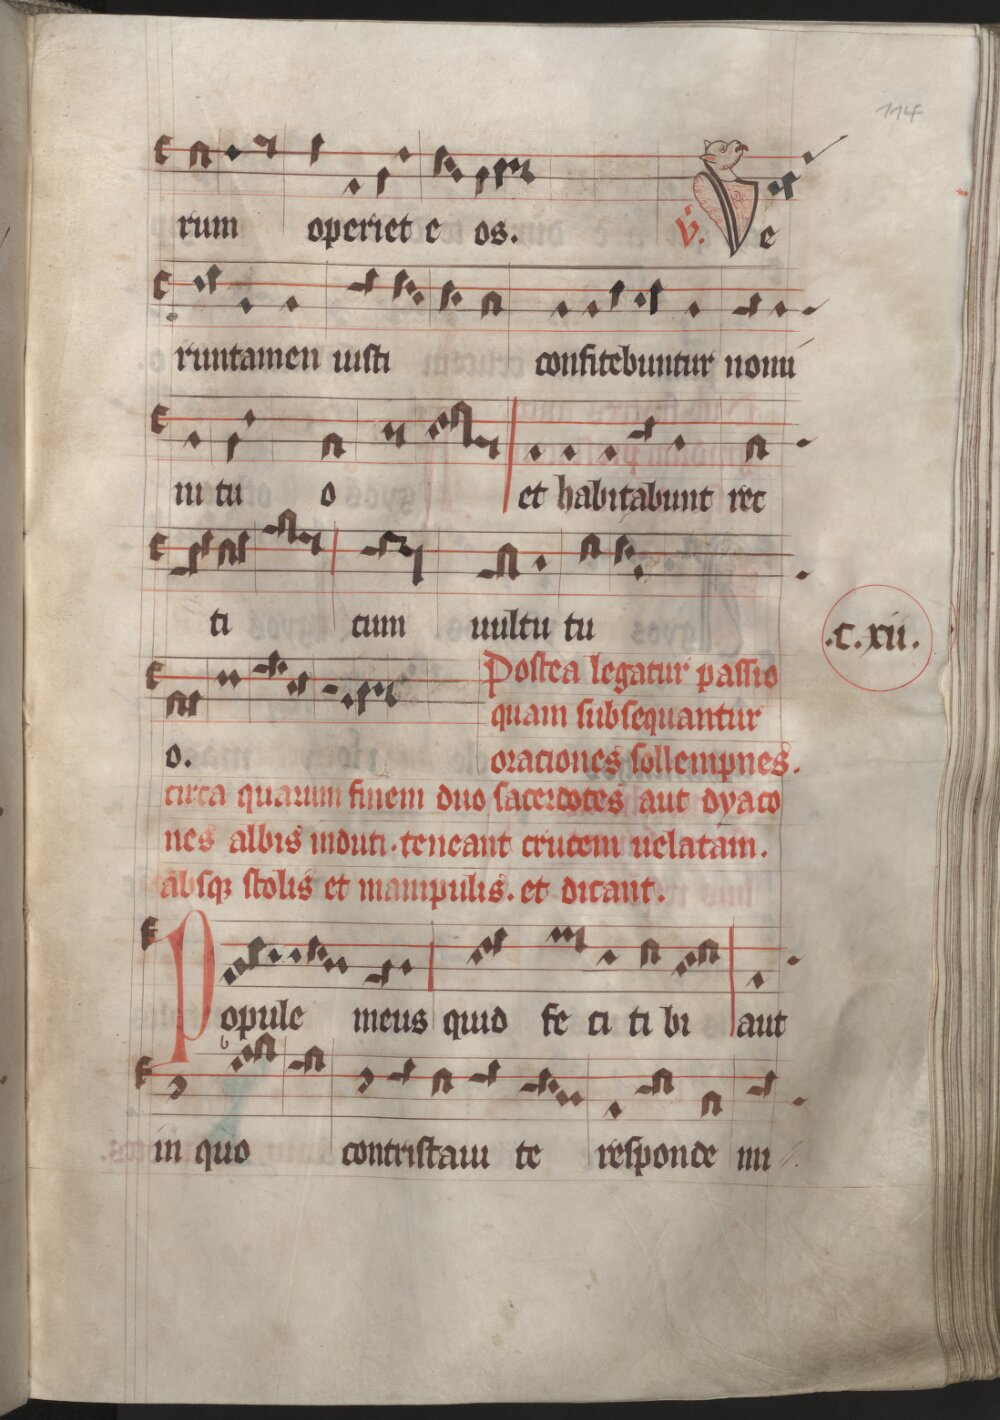 114
rum operiet e os. V. Ve
runtamen iusti confitebuntur nomi
ni tu o et habitabunt rec
ti cum uultu tu
.C.xii.
Postea legatur passio
quam subsequantur
o. orationes sollempnes.
circa quarum finem duo sacerdotes aut dyaco
nes albis induti. teneant crucem uelatam.
absq; stolis et manipulis. et dicant.
Popule meus quid fe ci ti bi aut
in quo contristaui te responde mi